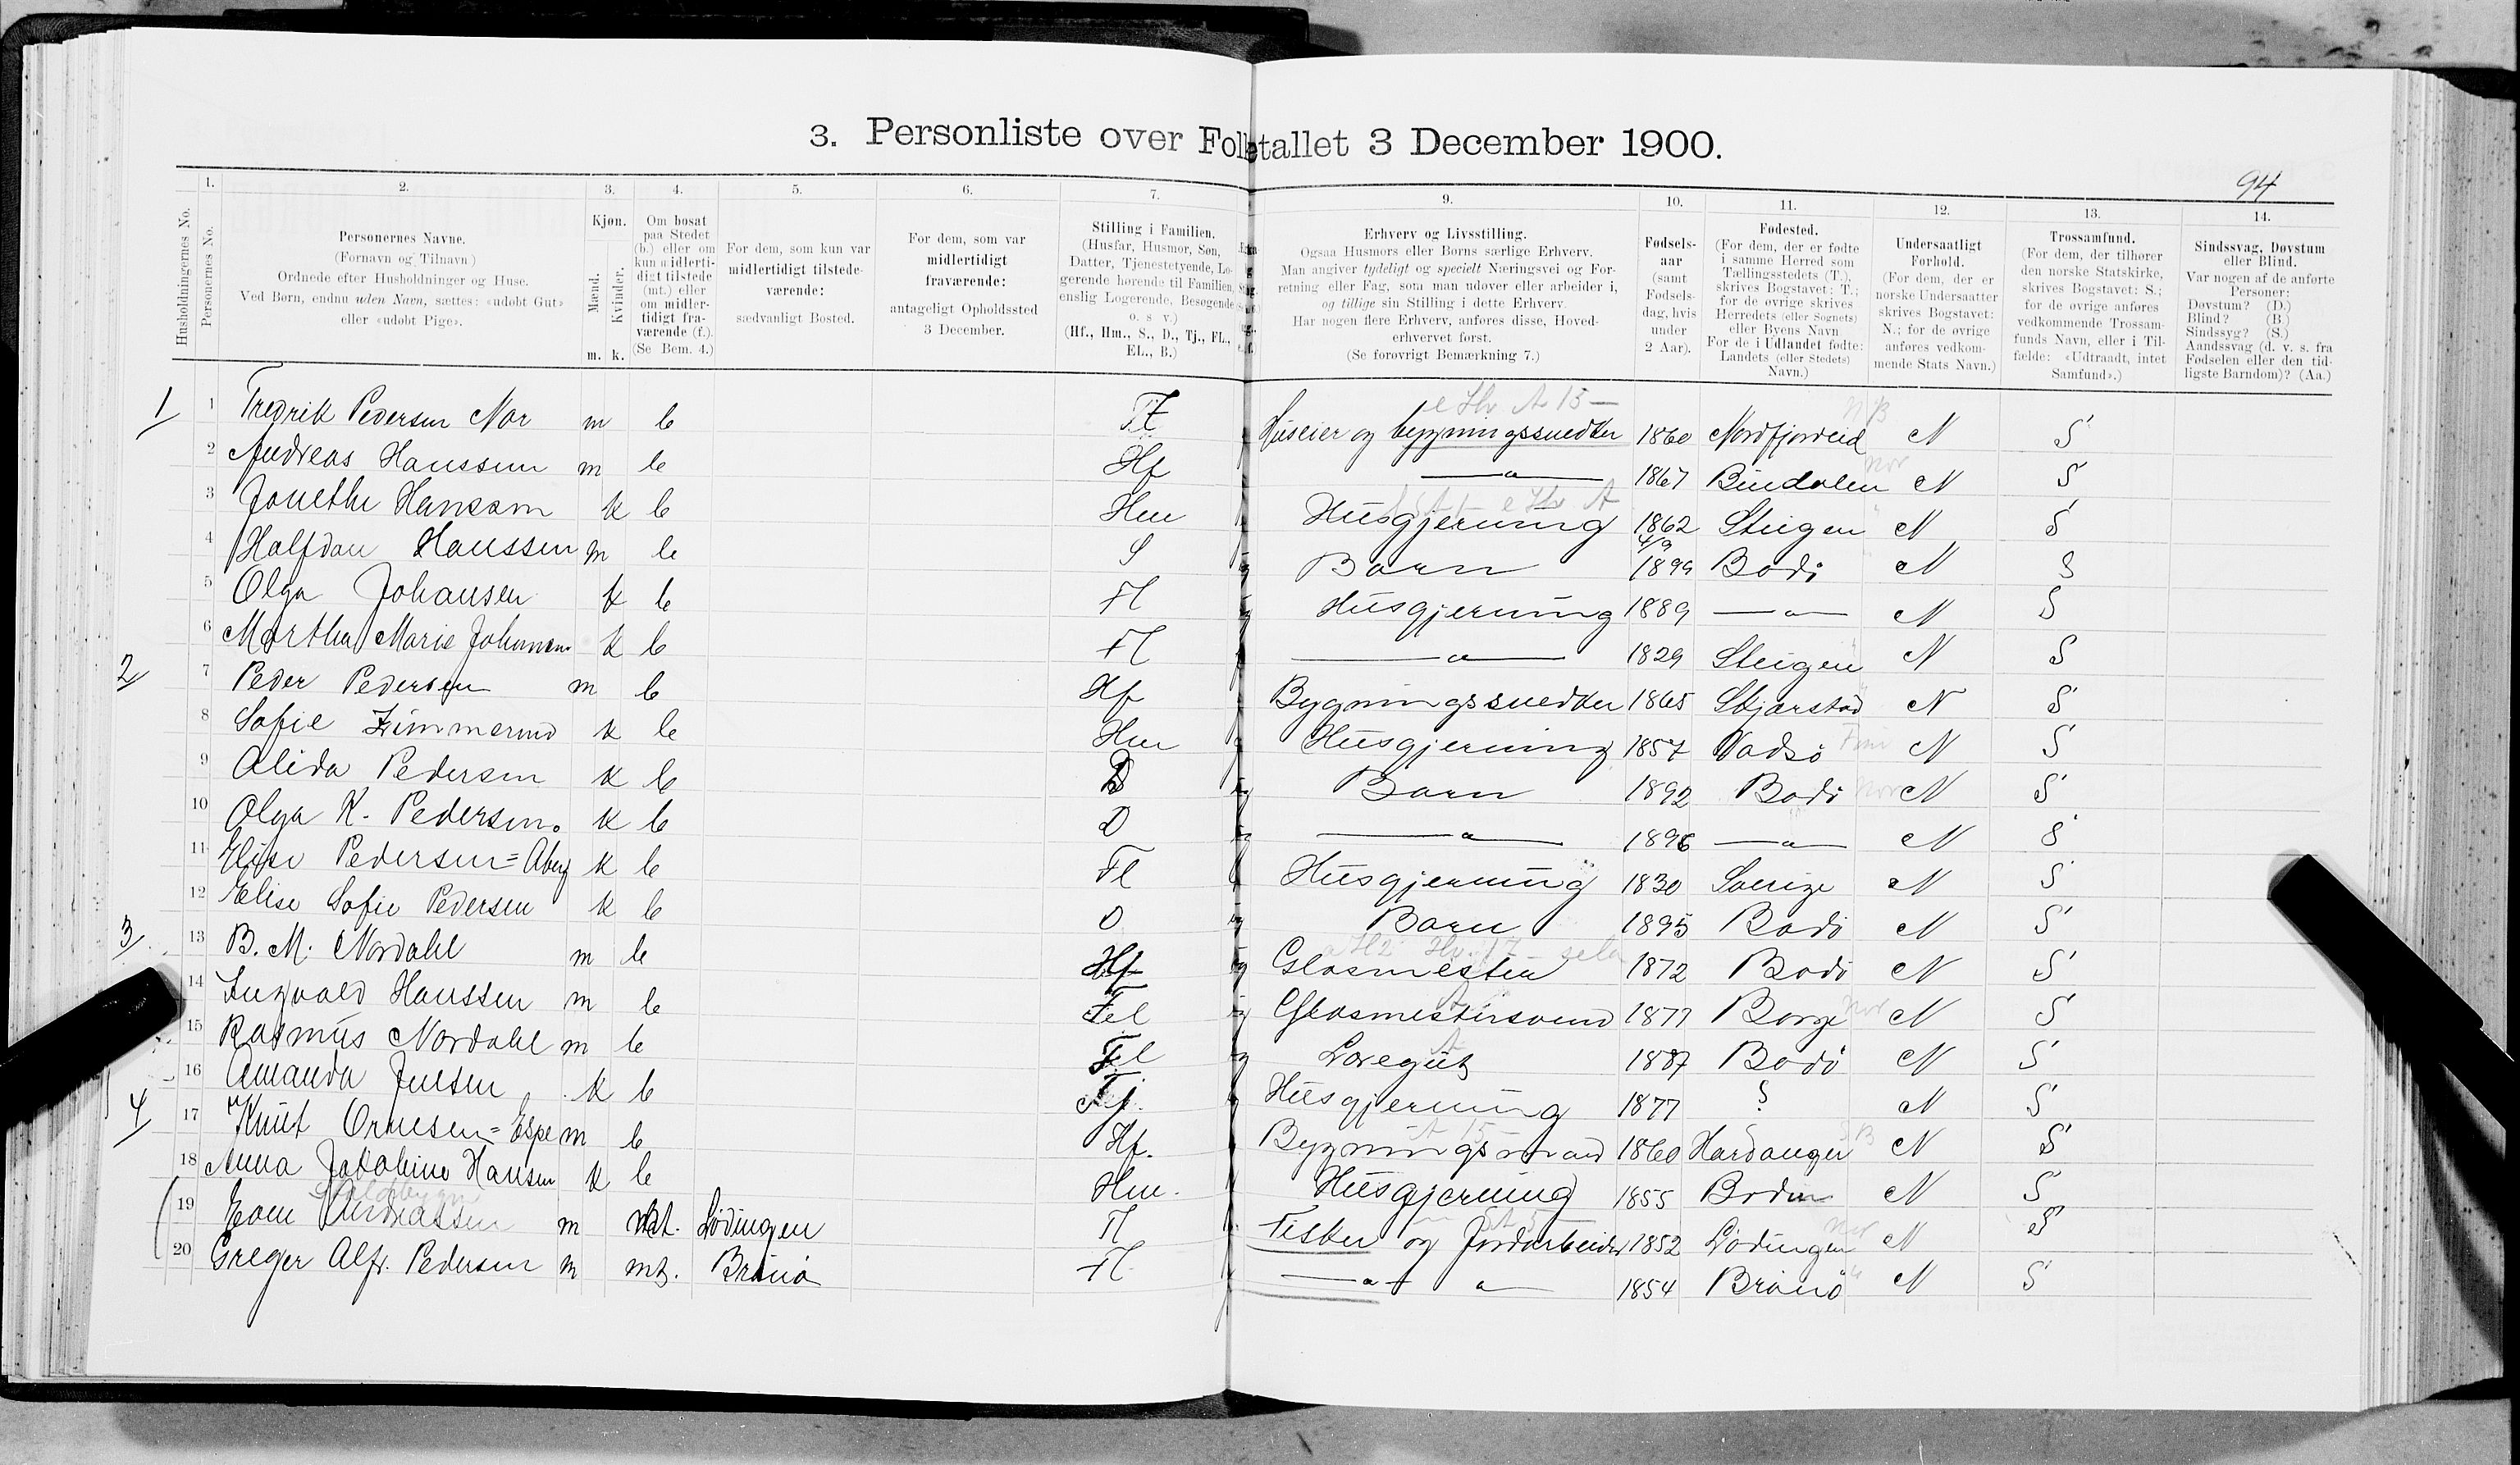 3. Personliste over Folketallet 3 December 1900.
94
1. 2. 3. 4. 5. 6. 7. 9. 10. 11. 12. 13. 14.
Husholdningernes No.
Personernes No.
Personernes Navne.
(Fornavn og Tilnavn)
Ordnede efter Husholdninger og Huse.
Ved Børn, endnu uden Navn, sættes: «udøbt Gut»
eller «udøbt Pige».
Kjøn.
Mænd.
Kvinder.
m. k.
Om bosat
paa Stedet
(b.) eller om
kun midlerti-
digt tilstede
(mt.) eller
om midler-
tidigt fra-
værende (f.).
(Se Bem. 4.)
For dem, som kun var
midlertidigt tilstede-
værende:
sædvanligt Bosted.
For dem, som var
midlertidigt
fraværende:
antageligt Opholdssted
3 December.
Stilling i Familien.
(Husfar, Husmor, Søn,
Datter, Tjenestetyende, Lo-
gerende hørende til Familien,
enslig Logerende, Besøgende
o. s. v.)
(Hf., Hm., S., D., Tj., FL.,
EL., B.)
Erhverv og Livsstilling.
Ogsaa Husmors eller Børns særlige Erhverv.
Man angiver tydeligt og specielt Næringsvei og For-
retning eller Fag, som man udøver eller arbeider i,
og tillige sin Stilling i dette Erhverv.
Har nogen flere Erhverv, anføres disse, Hoved-
erhvervet først.
(Se forøvrigt Bemærkning 7.)
Fødsels-
aar
(samt
Fødsels-
dag, hvis
under
2 Aar).
Fødested.
(For dem, der er fødte
i samme Herred som
Tællingsstedets (T.),
skrives Bogstavet: T.;
for de øvrige skrives
Herredets (eller Sognets)
eller Byens Navn
For de i Udlandet fødte:
Landets (eller Stedets)
Navn.)
Undersaatligt
Forhold.
(For dem, der er
norske Undersaatter
skrives Bogstavet:
N.; for de øvrige
anføres vedkom-
mende Stats Navn.)
Trossamfund.
(For dem, der tilhører
den norske Statskirke,
skrives Bogstavet: S.;
for de øvrige anføres
vedkommende Trossam-
funds Navn, eller i Til-
fælde: «Udtraadt, intet
Samfund».)
Sindssvag, Døvstum
eller Blind.
Var nogen af de anførte
Personer:
Døvstum? (D.)
Blind? (B.)
Sindssyg? (S.)
Aandssvag (d. v. s. fra
Fødselen eller den tid-
ligste Barndom)? (Aa.)
1 1 Fredrik Pedersen Nor m b Fl Huseier og bygningssnedker 1860 Nordfjordeid N S
2 Andreas Hanssen m b Hf —"— 1867 Bindalen N S
3 Jonethe Hanssen k b Hm Husgjerning 1862 Steigen N S
4 Halfdan Hanssen m b S Barn 4/9 1899 Bodö N S
5 Olga Johansen k b Fl Husgjerning 1889 —"— N S
6 Martha Marie Johansen k b Fl —"— 1829 Steigen N S
2 7 Peder Pedersen m b Hf Bygningssnedker 1865 Skjærstad N S
8 Sofie Zimmermd k b Hm Husgjerning 1857 Vadsö N S
9 Alida Pedersen k b D Barn 1892 Bodö N S
10 Olga K. Pedersen. k b D —"— 1896 —"— N S
11 Elise Pedersen=Aberg k b Fl Husgjerning 1830 Sverige N S
12 Elise Sofie Pedersen k b D Barn 1895 Bodö N S
3 13 B. M. Nordahl m b Hf Glasmester 1872 Bodö N S
14 Ingvald Hanssen m b Fl Glasmestersvend 1877 Borge N S
15 Rasmus Nordahl m b Fl Læregut 1887 Bodö N S
16 Amanda Jensen k b Tj. Husgjerning 1877 ? N S
4 17 Knut Ornesen=Espe m b Hf. Bygningsmand 1860 Hardanger N S
18 Anna Jakobine Hansen k b Hm. Husgjerning 1855 Bodin N S
19 Even Andreassen m mt. Lödingen Fl Fisker og Jordarbeider 1852 Lödingen N S
20 Greger Alfr. Pedersen m mt. Brönö Fl —"— " — 1854 Brönö N S